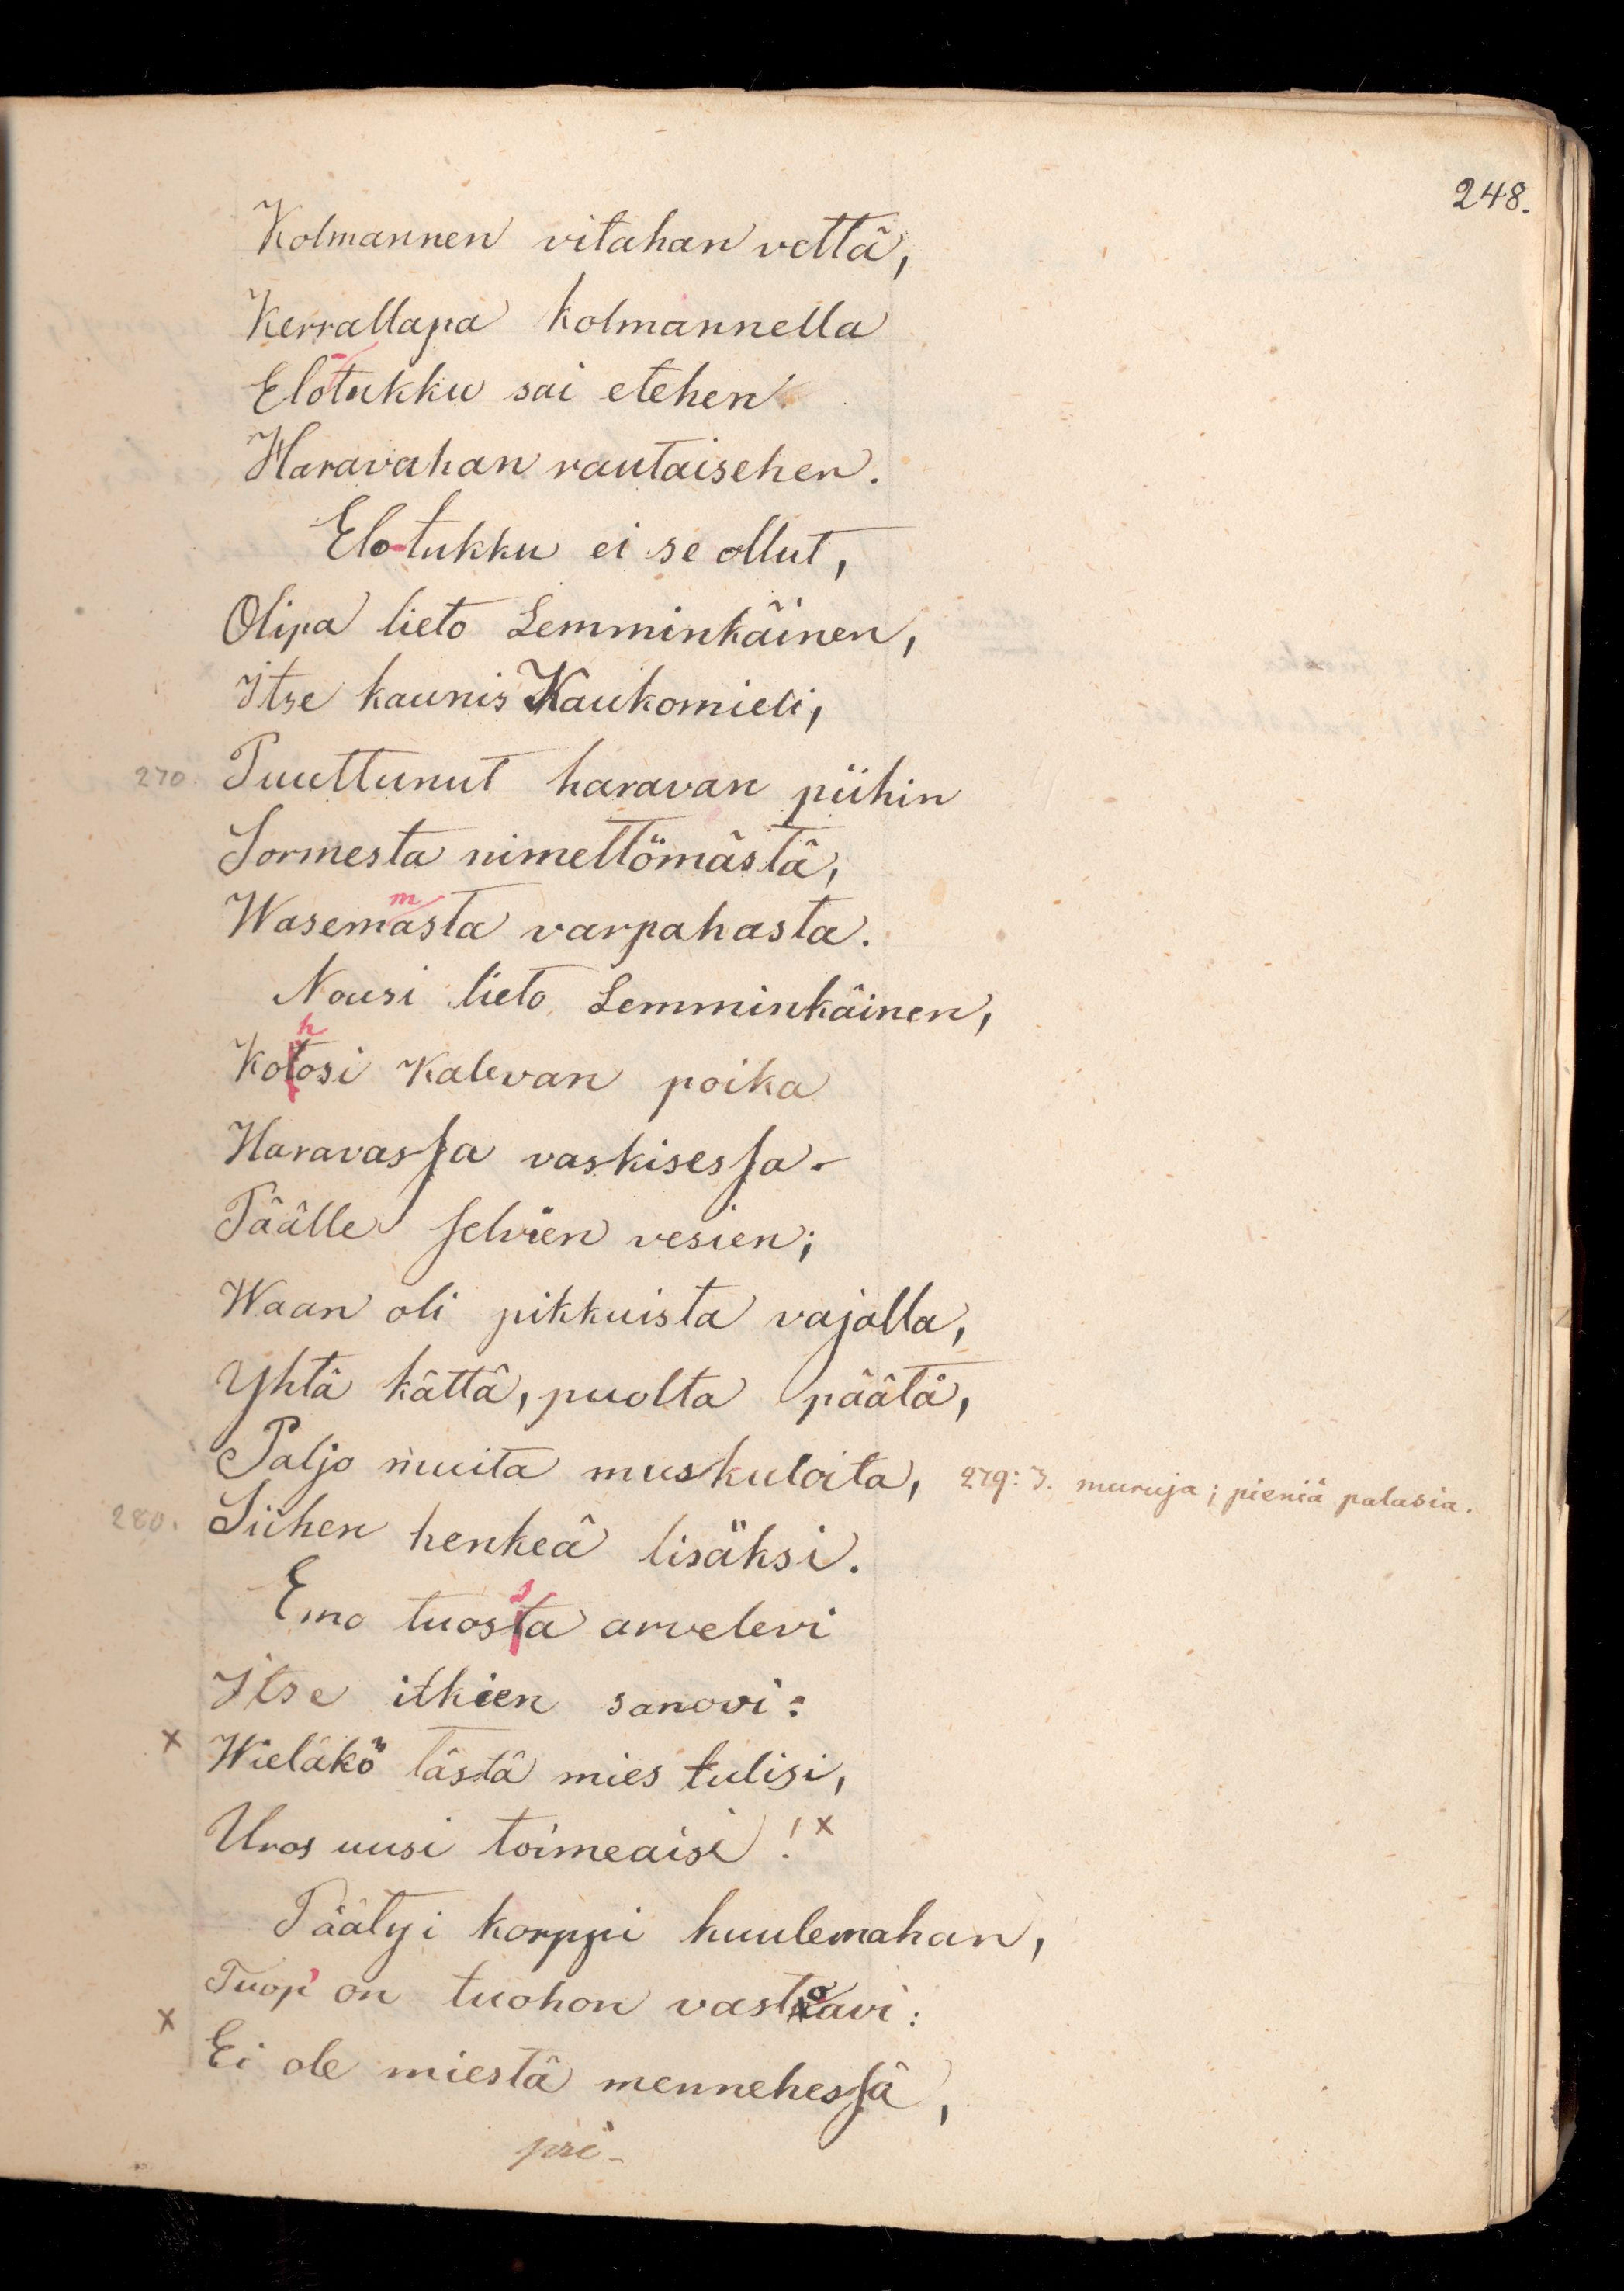 248.
Kolmannen vitahan vettä,
Kerrallapa kolmannella
Elo-tukku sai etehen
Haravahan rautaisehen.
Elo-tukku ei se ollut,
Olipa lieto Lemminkäinen,
Itse kaunis Kaukomieli,
270. Puuttunut haravan piihin
Sormesta nimettömästä,
Wasemmasta varpahasta.
Nousi lieto Lemminkäinen,
Kohosi Kalevan poika
Haravassa vaskisessa-
Päälle selvien vesien;
Waan oli pikkuista vajalla,
Yhtä kättä, puolta päätä,
Paljo muita muskuloita, 279: 3. muruja; pieniä palasia.
280. Siihen henkeä lisäksi.
Emo tuossa arvelevi
Itse itkien sanovi:
x Wieläkö tästä mies tulisi,
Uros uusi toimeaisi! x
Päätyi korppi kuulemahan,
Tuop' on tuohon vastoavi:
x Ei ole miestä mennehessä,
pri-